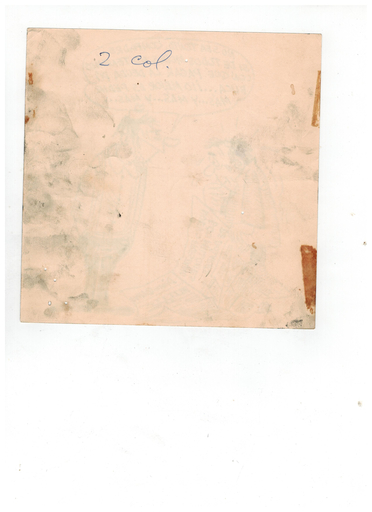 2 col.